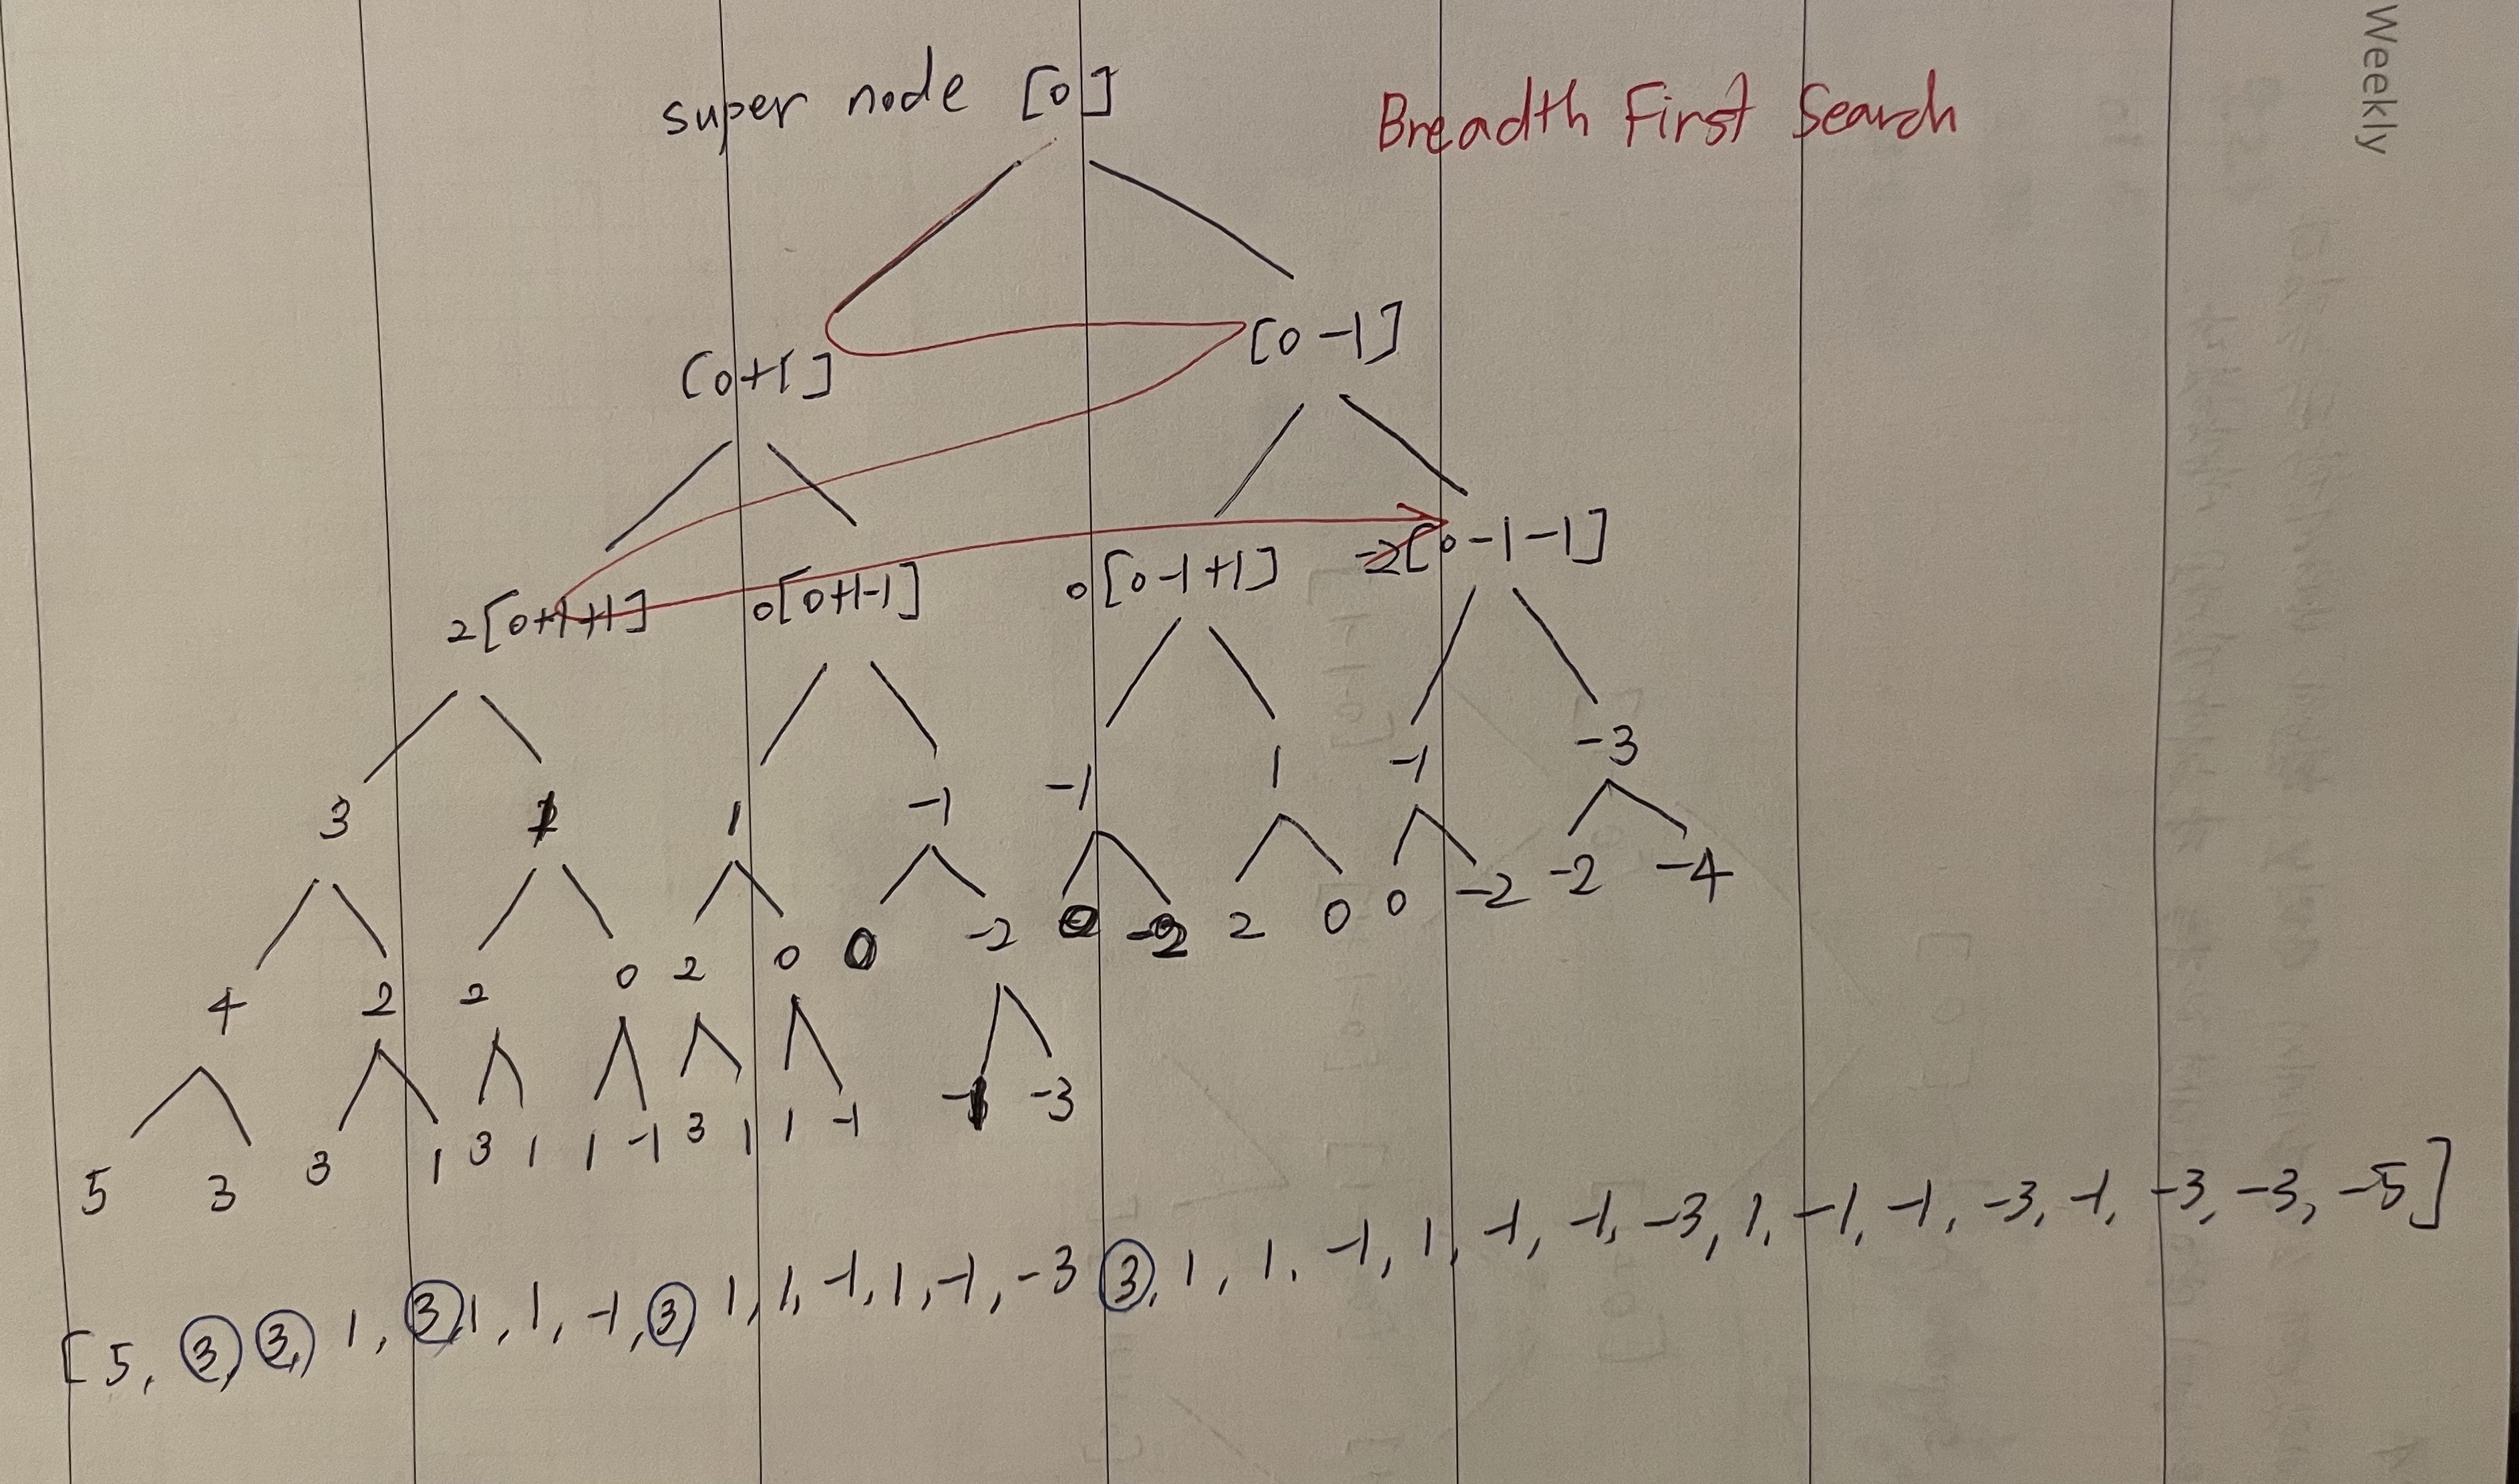 Weekly
super node [0]
Breadth First Search
[0+1] [0-1]
2[0+1+1] 0[0+1-1] 0[0-1+1] -2[0-1-1]
3 1 1 -1 -1 1 -1 -3
4 2 2 0 2 0 0 -2 0 -2 2 0 0 -2 -2 -4
5 3 3 1 3 1 1 -1 3 1 1 -1 -1 -3
[5, 3, 3, 1, 3, 1, 1, -1, 3, 1, 1, -1, 1, -1, -3 3, 1, 1, -1, 1, -1, -1, -3, 1, -1, -1, -3, -1, -3, -3, -5]